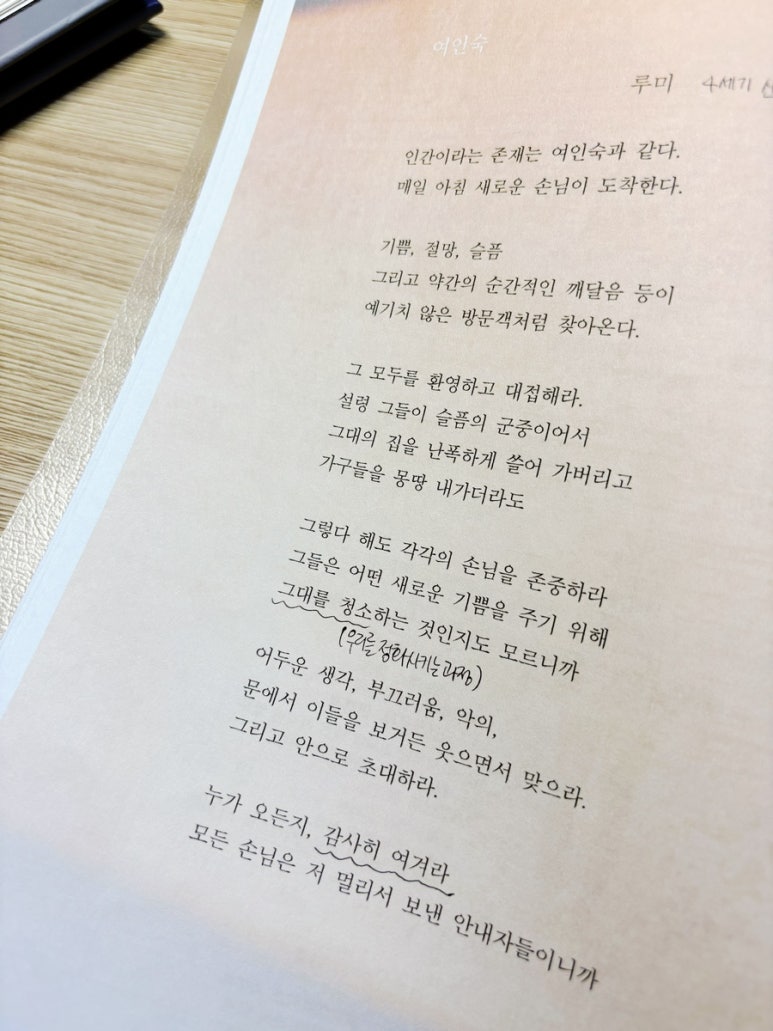 여인숙
루미 4세기
인간이라는 존재는 여인숙과 같다.
매일 아침 새로운 손님이 도착한다.
기쁨, 절망, 슬픔
그리고 약간의 순간적인 깨달음 등이
예기치 않은 방문객처럼 찾아온다.
그 모두를 환영하고 대접해라.
설령 그들이 슬픔의 군중이어서
그대의 집을 난폭하게 쓸어 가버리고
가구들을 몽땅 내가더라도
그렇다 해도 각각의 손님을 존중하라
그들은 어떤 새로운 기쁨을 주기 위해
그대를 청소하는 것인지도 모르니까
(우리를 정화시키는 과정)
어두운 생각, 부끄러움, 악의,
문에서 이들을 보거든 웃으면서 맞으라.
그리고 안으로 초대하라.
누가 오든지, 감사히 여겨라
모든 손님은 저 멀리서 보낸 안내자들이니까